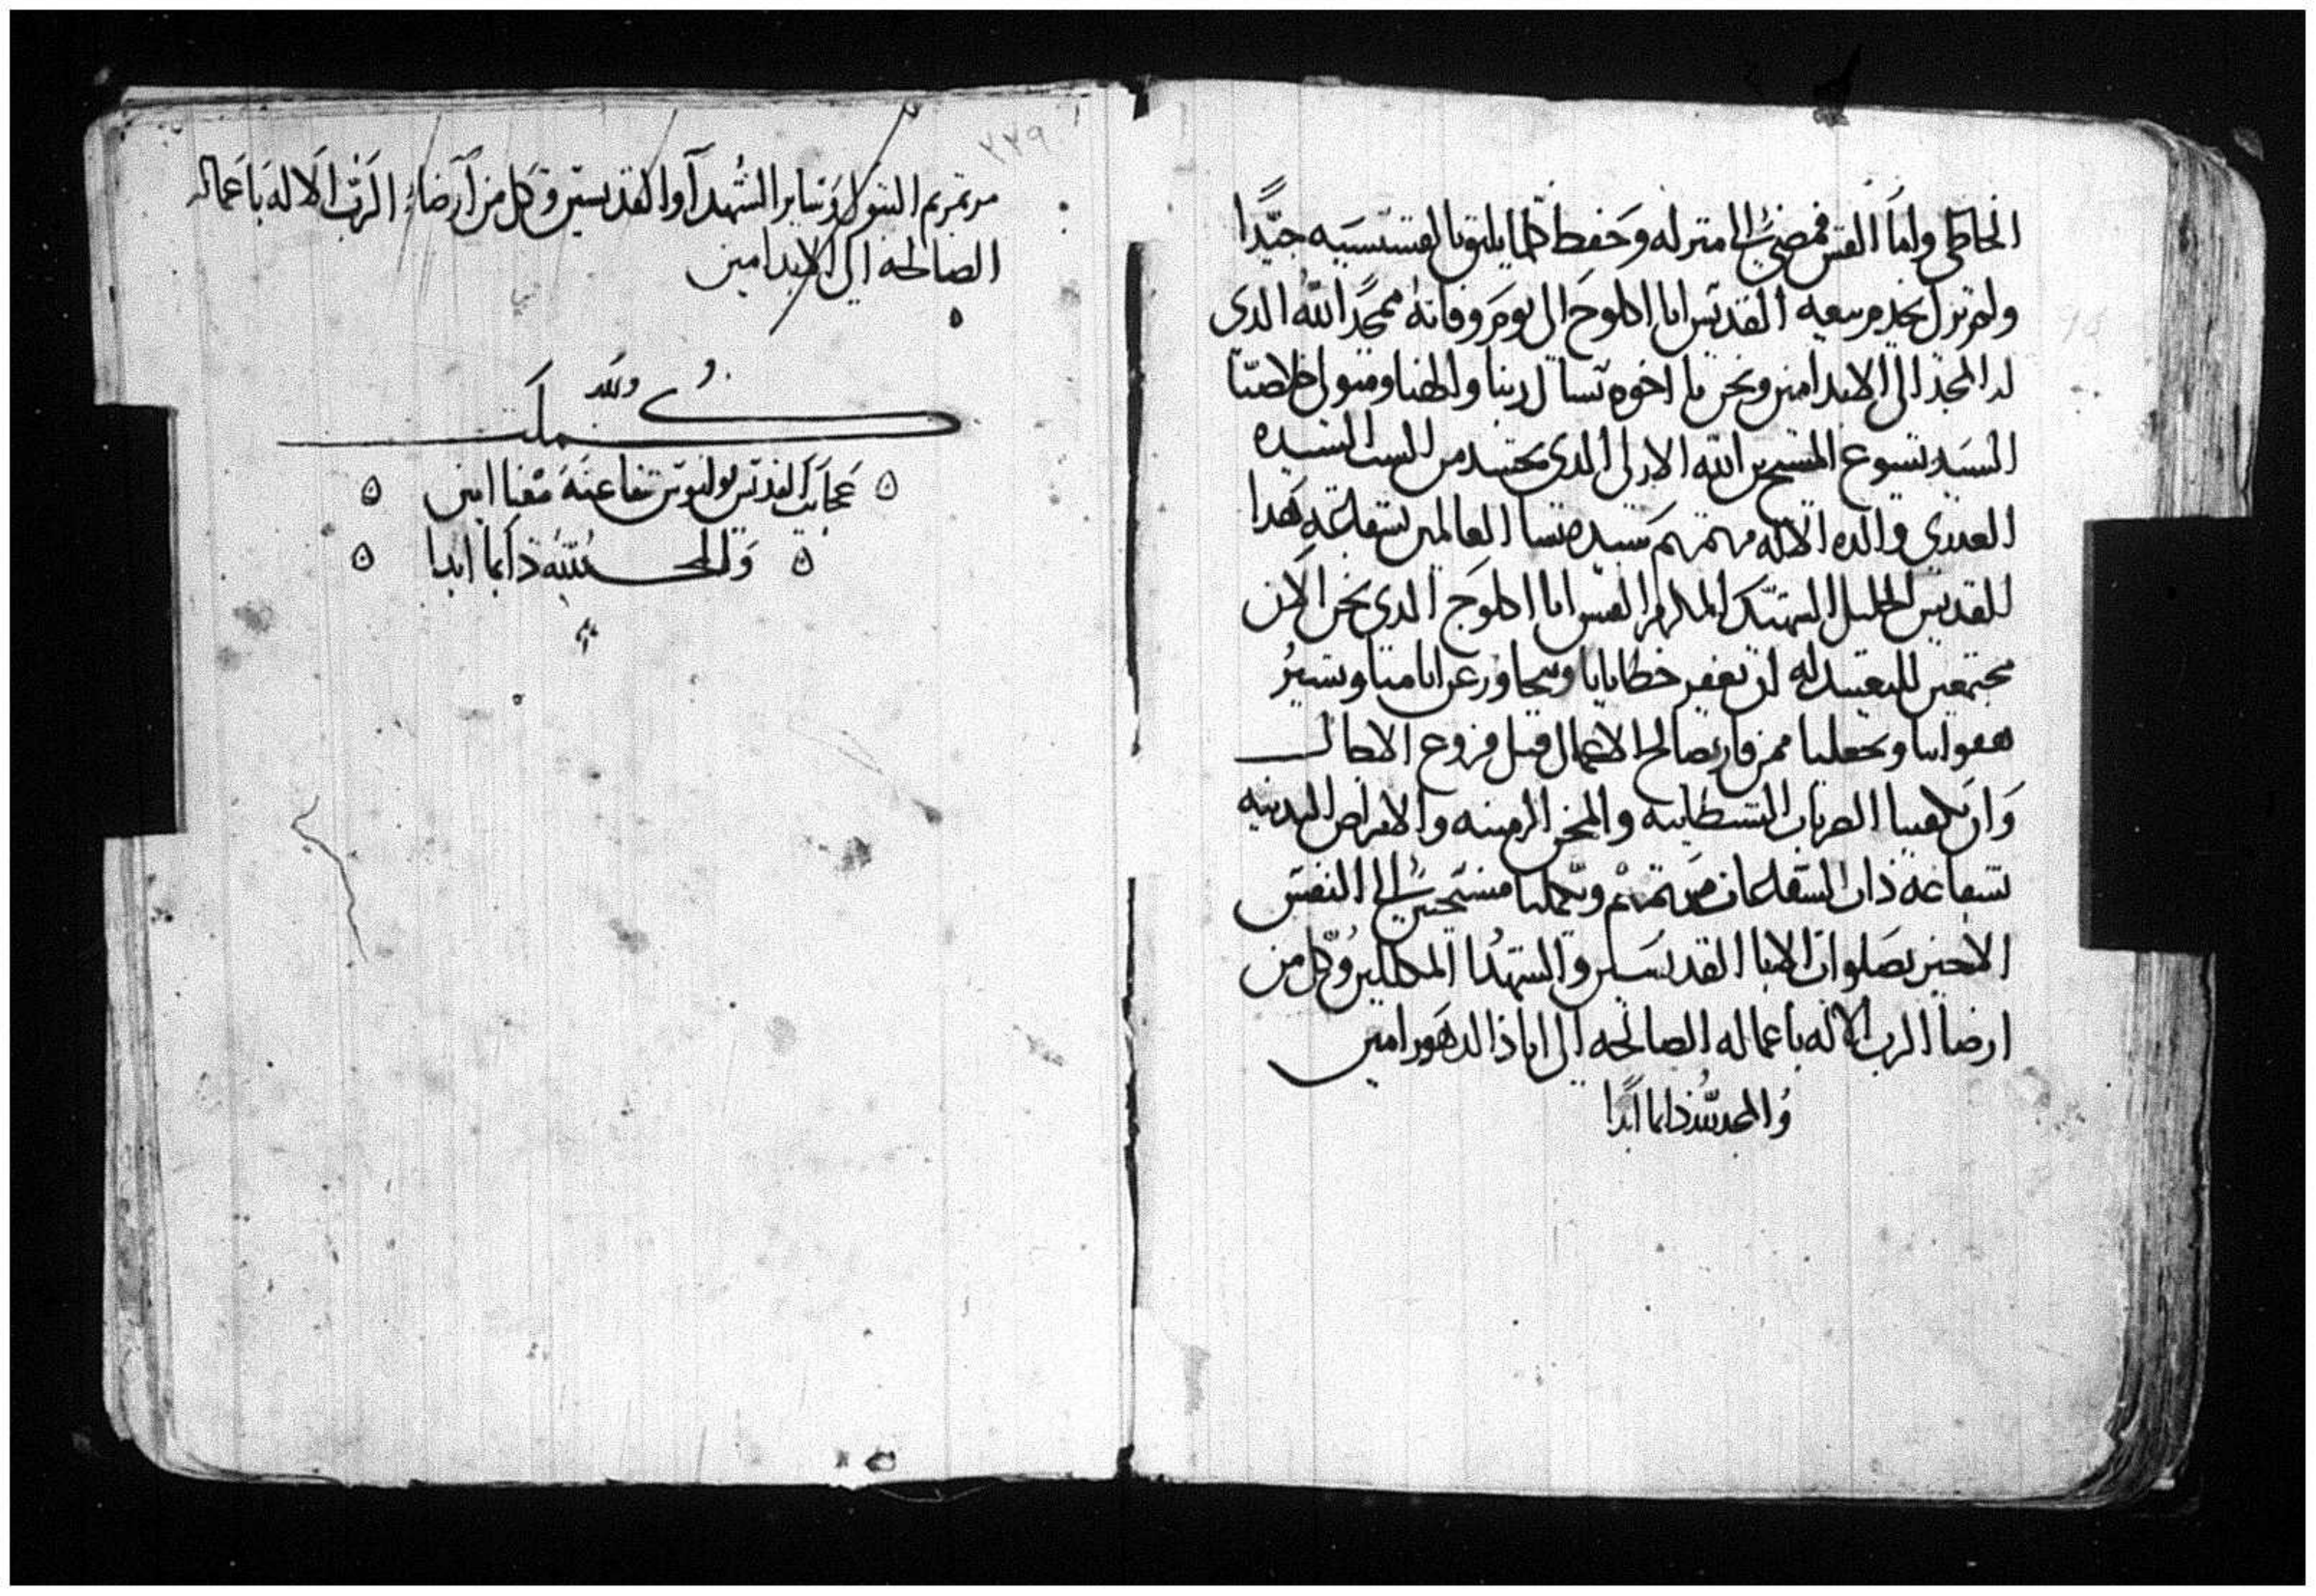 الخاطي واما القس فمضي الي منزله وحفظ كلما يليق بالقسيسيه جيدًا
ولم يزل يخدم بيعه القديس ابا اكلوج الى يوم وفاته ممجدًا الله الدى
له المجد الى الابد امين ونحن يا اخوه نسال ربنا والهنا ومتولى خلاصنا
السيد يسوع المسيح بن الله الازلى الدى تجسد من الست السيده
العدرى والده الاله مرتمريم سيده نسا العالمين بشفاعه هدا
للقديس الجليل الشهيد المكرم القس ابا اكلوج الدى نحن الان
مجتمعين للتعييد له ان يغفر خطايانا ويتجاوز عن اتامنا ويستر
هفواتنا ويجعلنا ممن فاز بصالح الاعمال قبل فروغ الاجال
وان يكفينا الضربات الشيطانيه والمحن الزمنيه والامراض البدنيه
بشفاعه ذات الشفاعات مرتمريم ويجعلنا مستحقين الى النفس
الاخير بصلوات الابا القديسين والشهدا المكللين وكل من
ارضا الرب الاله باعماله الصالحه الى اباد الدهور امين
والمجد لله دايما ابدًا
٢٢٩
مرتمريم البتول وساير الشهدآ والقديسين وكل من آرضاء الرب الاله باعماله
الصالحه الى الابد امين
كملت
عجايب القديس بوليوس شفاعته معنا امين
والمجد لله دايما ابدا